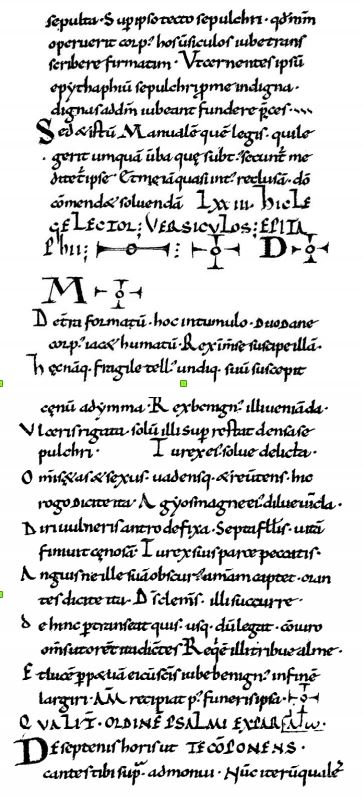 sepulta. Superipso tecto sepulchri. quod meum
operuerit corpus. hos uersiculos iube trans
scribere firmatim. Ut cernentes ipsum
epythaphium sepulchri pme indigna.
dignas ad dm iubeant fundere pces.
Sed & istum Manualem quem legis. qui le
gerit umquam uba que subt. secunt me
dite& ipse
comend& soluendam LXXIII. Hic LE
GE LECTOR; VERSICULOS; EPITA
Phii; D
M
De terra formatum. hoc in tumulo. Duodane
corp. iac& humatum. Rex immse suscipe illam.
Hec namq. fragile tell. undiq. suum suscepit
cenum ad ymma. Rex benign. illi ueniam da.
Ulceris rigata. solum illi sup restat densa se
pulchri. Tu rex el. solue delicta.
Omis &as & sexus. uadensq. & reuertens. hic
rogo dicite ita. Agyos magne el. dilue uincla.
Diri uulneris antro defixa. Septa fellis. uitam
finiuit cenosam. Tu rex suis parce peccatis.
Anguis ne ille suam obscur. animam captet. oran
tes dicite ita. Ds clemens. illi succurre.
de hinc p transeat quis. usq. dum legat. coniuro
omis ut orent ita dicentes. Requiem illi tribue alme.
Et lucem pp&uam ei cum scis iube benign. infinem
largiri. AM recipiat p. funeris ipsa.
QUALIT. ORDINE PSALMI EX PARTE
De septenis horis ut TE COMPONENS.
cantes tibi sup. admonui. Nunc iterum quale